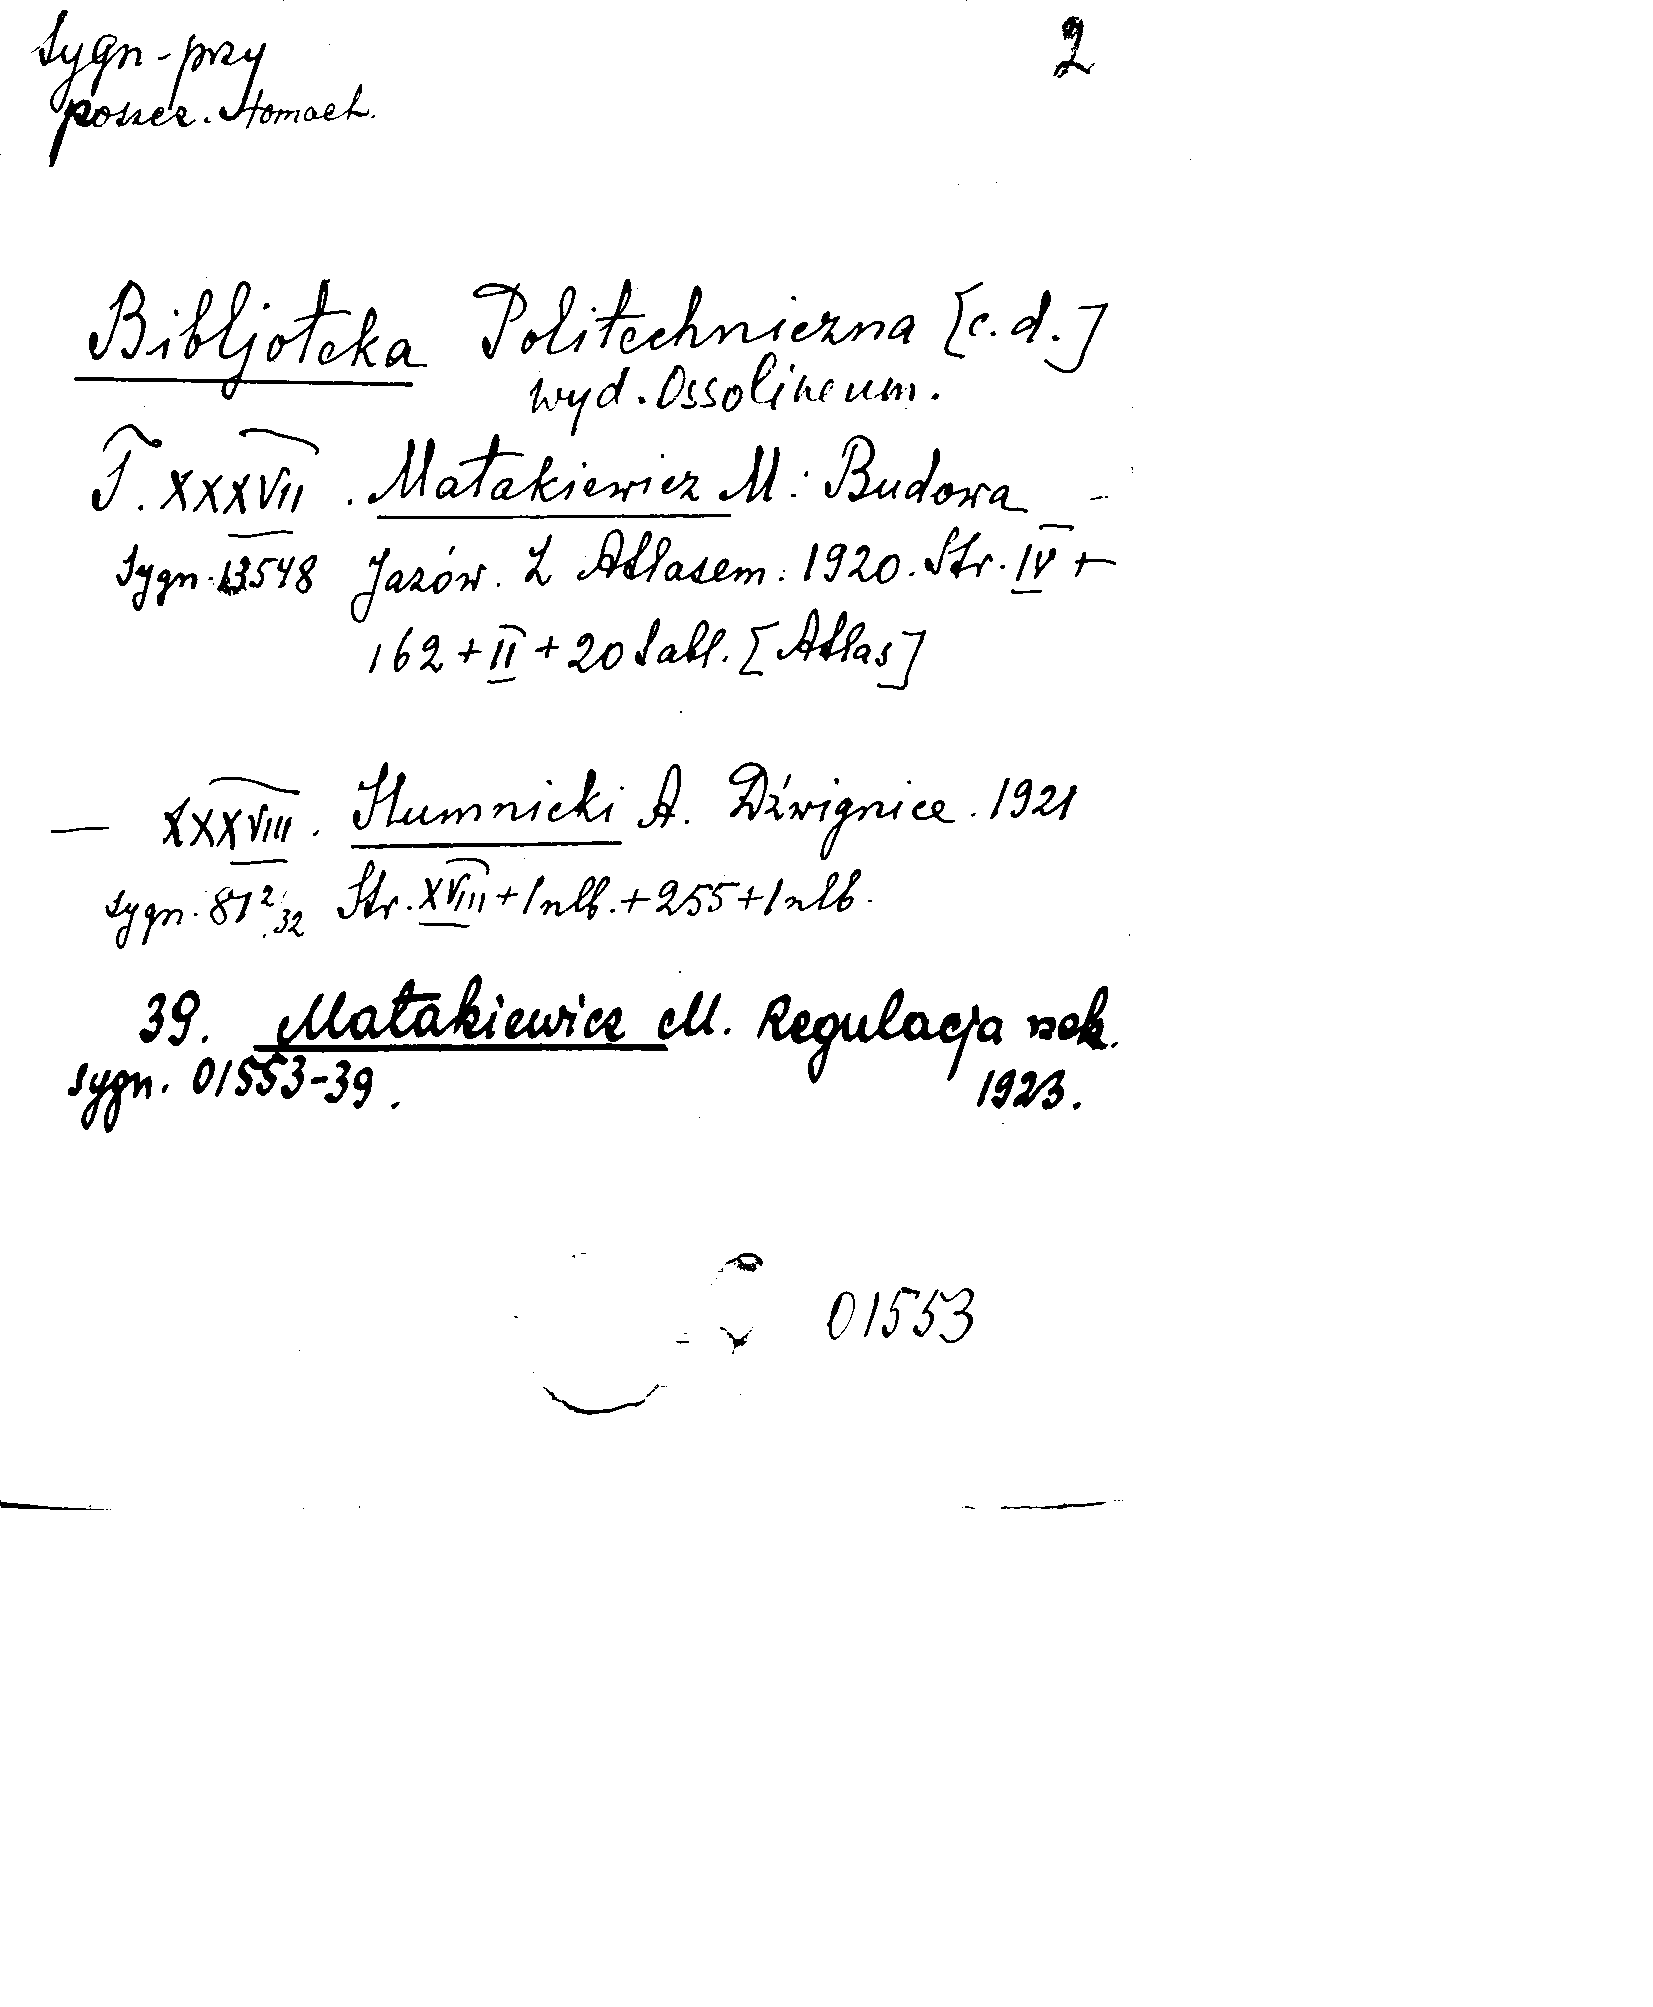 Sygn-przy
2
poszcz. tomach.
Bibljoteka Politechniczna [c.d.]
wyd. Ossolineum.
T. XXXVII. Matakiewicz M. Budowa
Sygn. 13548 Jazów. Z Atlasem. 1920. Str. IV +
162 + II + 20 tabl. [Atlas]
— XXXVIII. Humnicki A. Dźwignice. 1921
sygn. 812/32 Str. XVIII + 1 nlb. + 255 + 1 nlb.
39. Matakiewicz M. Regulacja rzek.
sygn. 01553-39. 1923.
01553